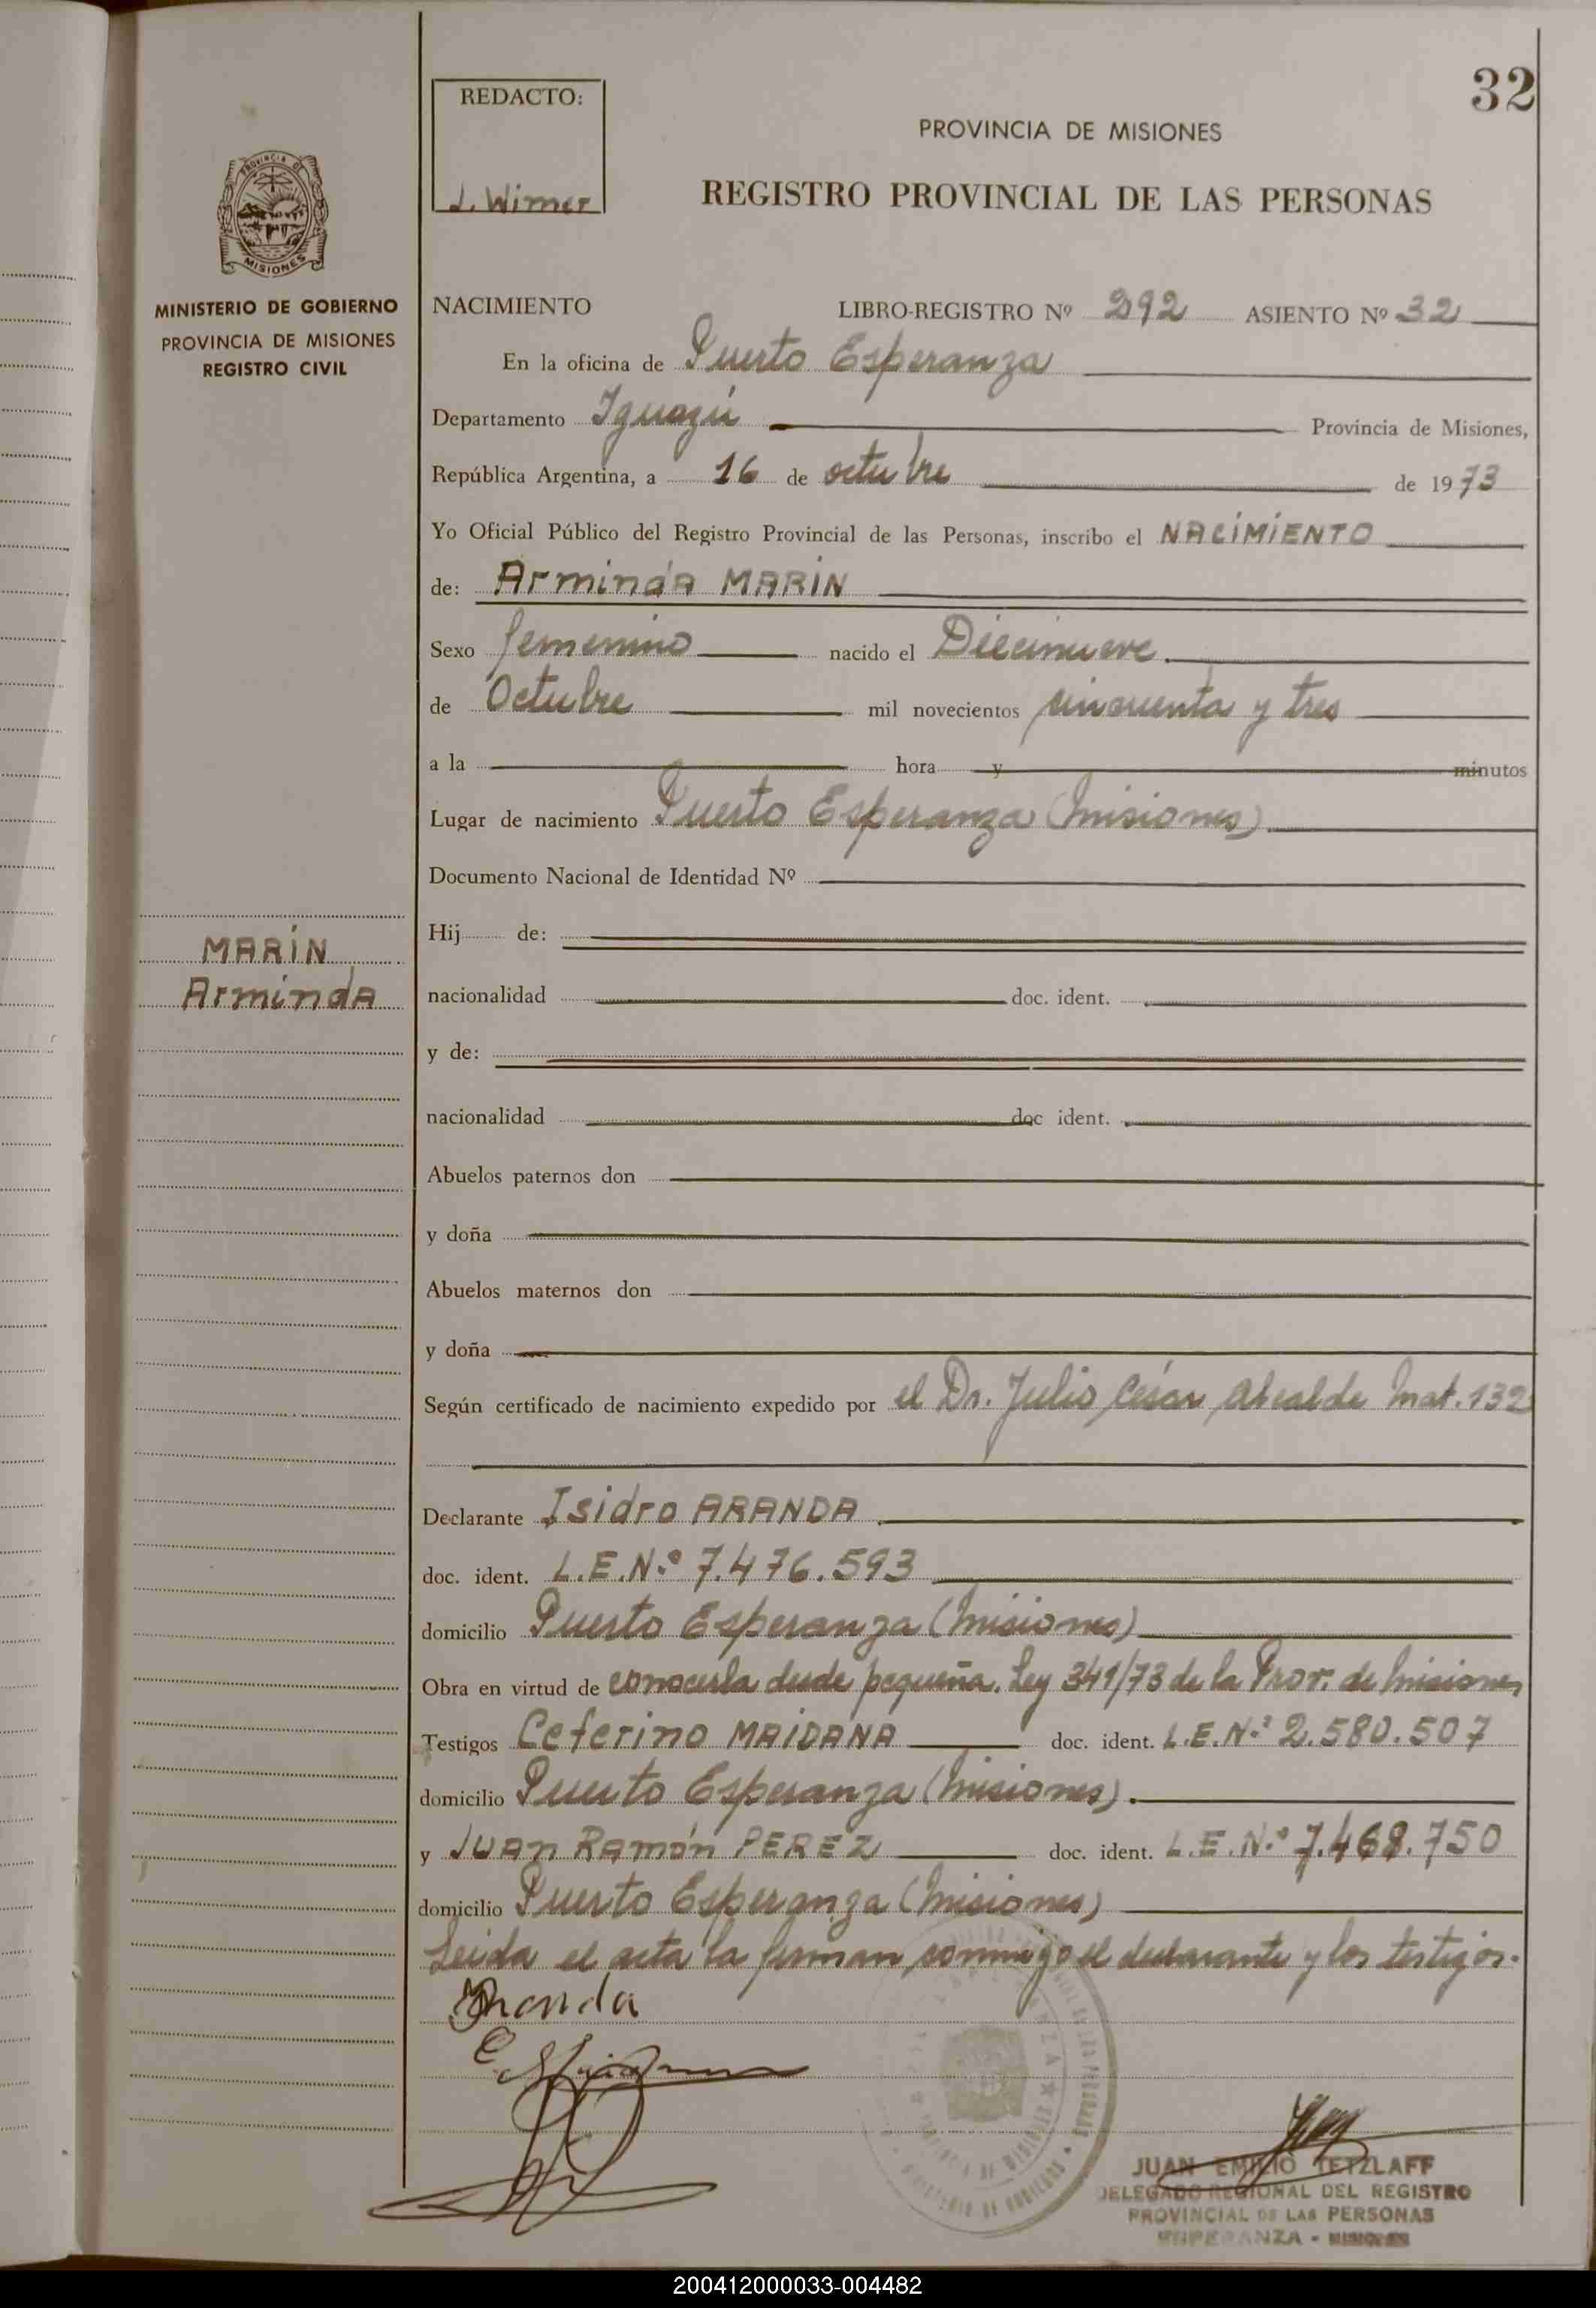 32
REDACTO:
J. Wimer
PROVINCIA DE MISIONES
REGISTRO PROVINCIAL DE LAS PERSONAS
PROVINCIA DE
MISIONES
MINISTERIO DE GOBIERNO
PROVINCIA DE MISIONES
REGISTRO CIVIL
MARÍN
Arminda
NACIMIENTO LIBRO-REGISTRO Nº 292 ASIENTO Nº 32
En la oficina de Puerto Esperanza
Departamento Iguazú Provincia de Misiones,
República Argentina, a 16 de octubre de 1973
Yo Oficial Público del Registro Provincial de las Personas, inscribo el NACIMIENTO
de: Arminda MARÍN
Sexo femenino nacido el Diecinueve
de Octubre mil novecientos cincuenta y tres
a la hora y minutos
Lugar de nacimiento Puerto Esperanza (Misiones)
Documento Nacional de Identidad Nº
Hij de:
nacionalidad doc. ident.
y de:
nacionalidad doc ident.
Abuelos paternos don
y doña
Abuelos maternos don
y doña
Según certificado de nacimiento expedido por el Dr. Julio César Alcalde Mat. 132
Declarante Isidro ARANDA
doc. ident. L.E.Nº 7.476.593
domicilio Puerto Esperanza (Misiones)
Obra en virtud de conocerla desde pequeña. Ley 341/73 de la Prov. de Misiones
Testigos Ceferino MAIDANA doc. ident. L.E.Nº 2.580.507
domicilio Puerto Esperanza (Misiones).
y Juan Ramón PEREZ doc. ident. L.E.Nº 7.468.750
domicilio Puerto Esperanza (Misiones)
Leida el acta la firman conmigo el declarante y los testigos.
Aranda
JUAN EMILIO TETZLAFF
DELEGADO REGIONAL DEL REGISTRO
PROVINCIAL DE LAS PERSONAS
ESPERANZA - MISIONES
200412000033-004482